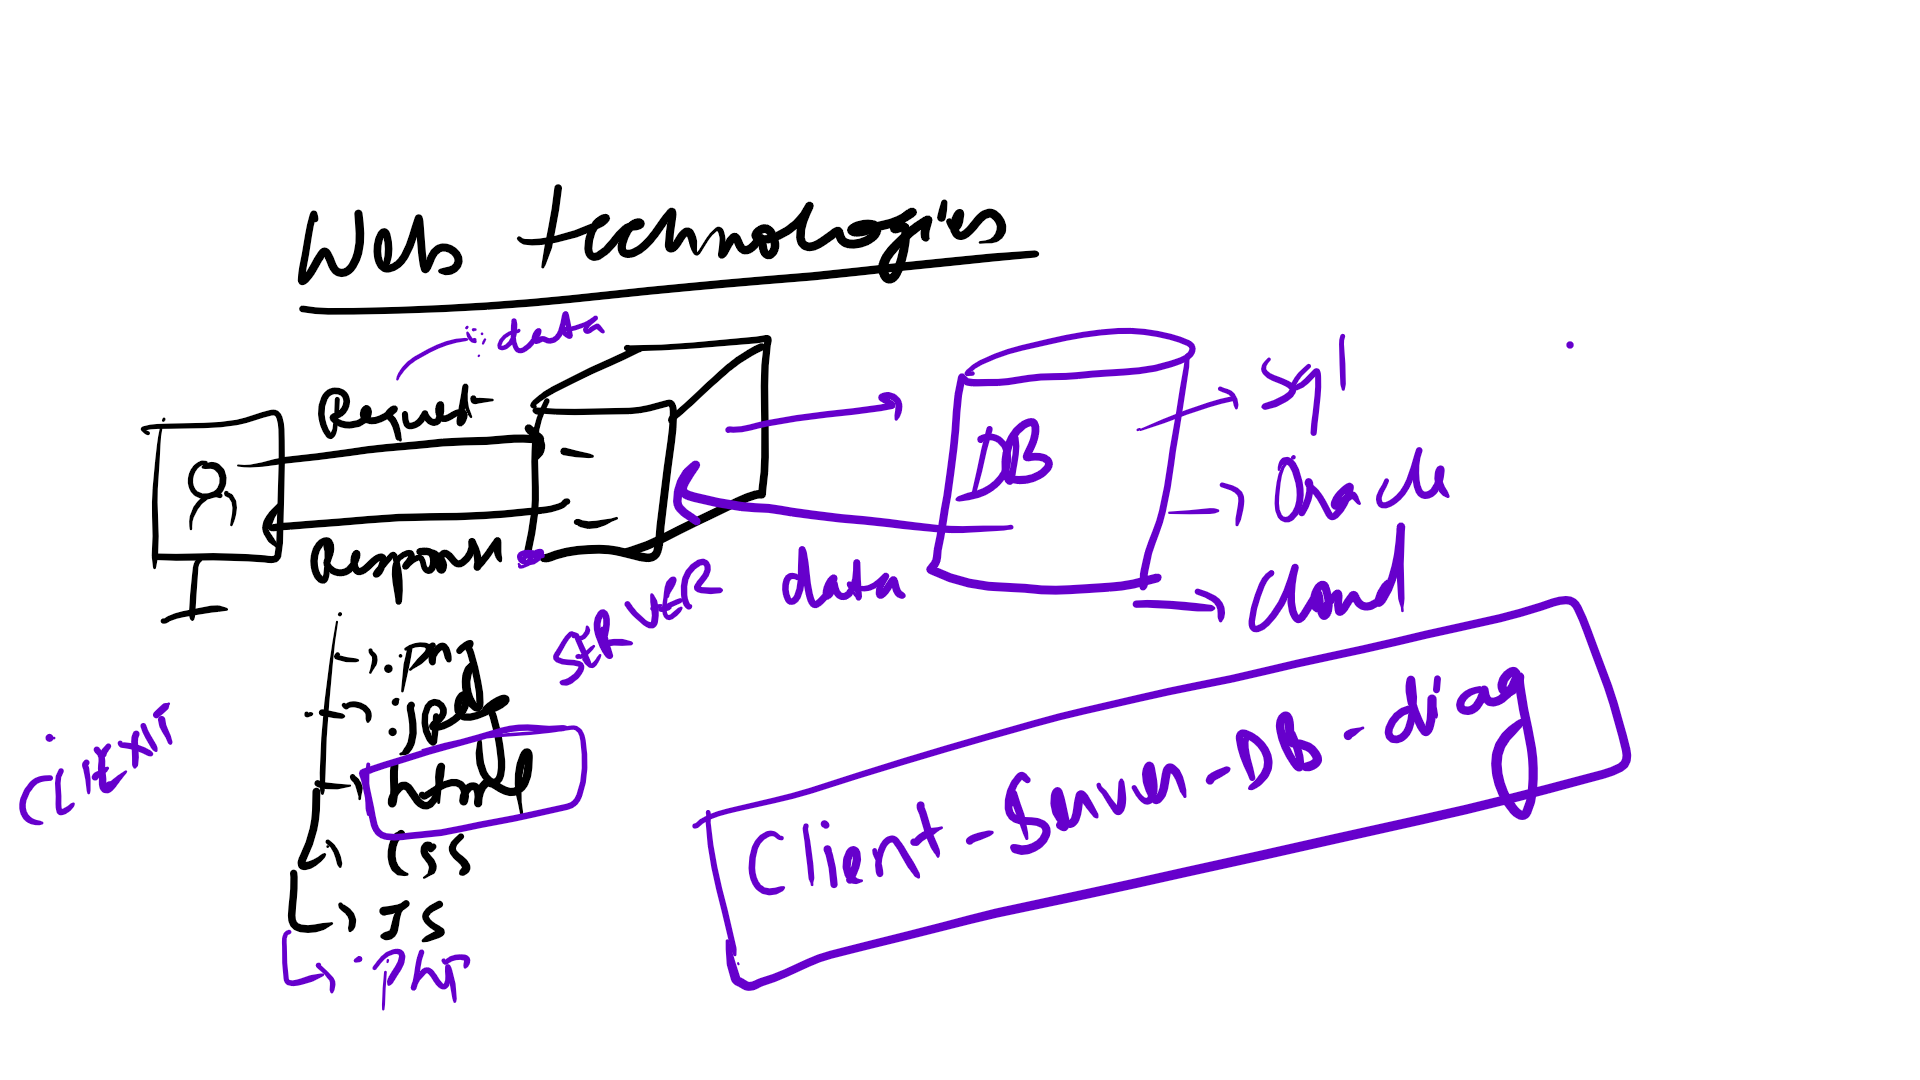 Web technologies
data
Request
Response
DB
sql
Oracle
Cloud
data
SERVER
.png
.jpeg
html
CSS
JS
.PHP
Client-Server-DB-diag